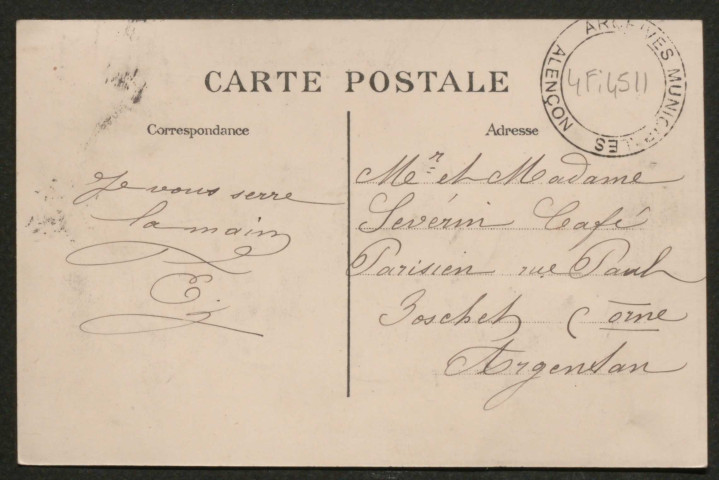 CARTE POSTALE
ARCHIVES MUNICIPALES
ALENÇON
4 Fi 4511
Correspondance
Adresse
Je vous serre
la main
E.
Mr et Madame
Sevérin Café
Parisien rue Paul
Boschet (Orne
Argentan